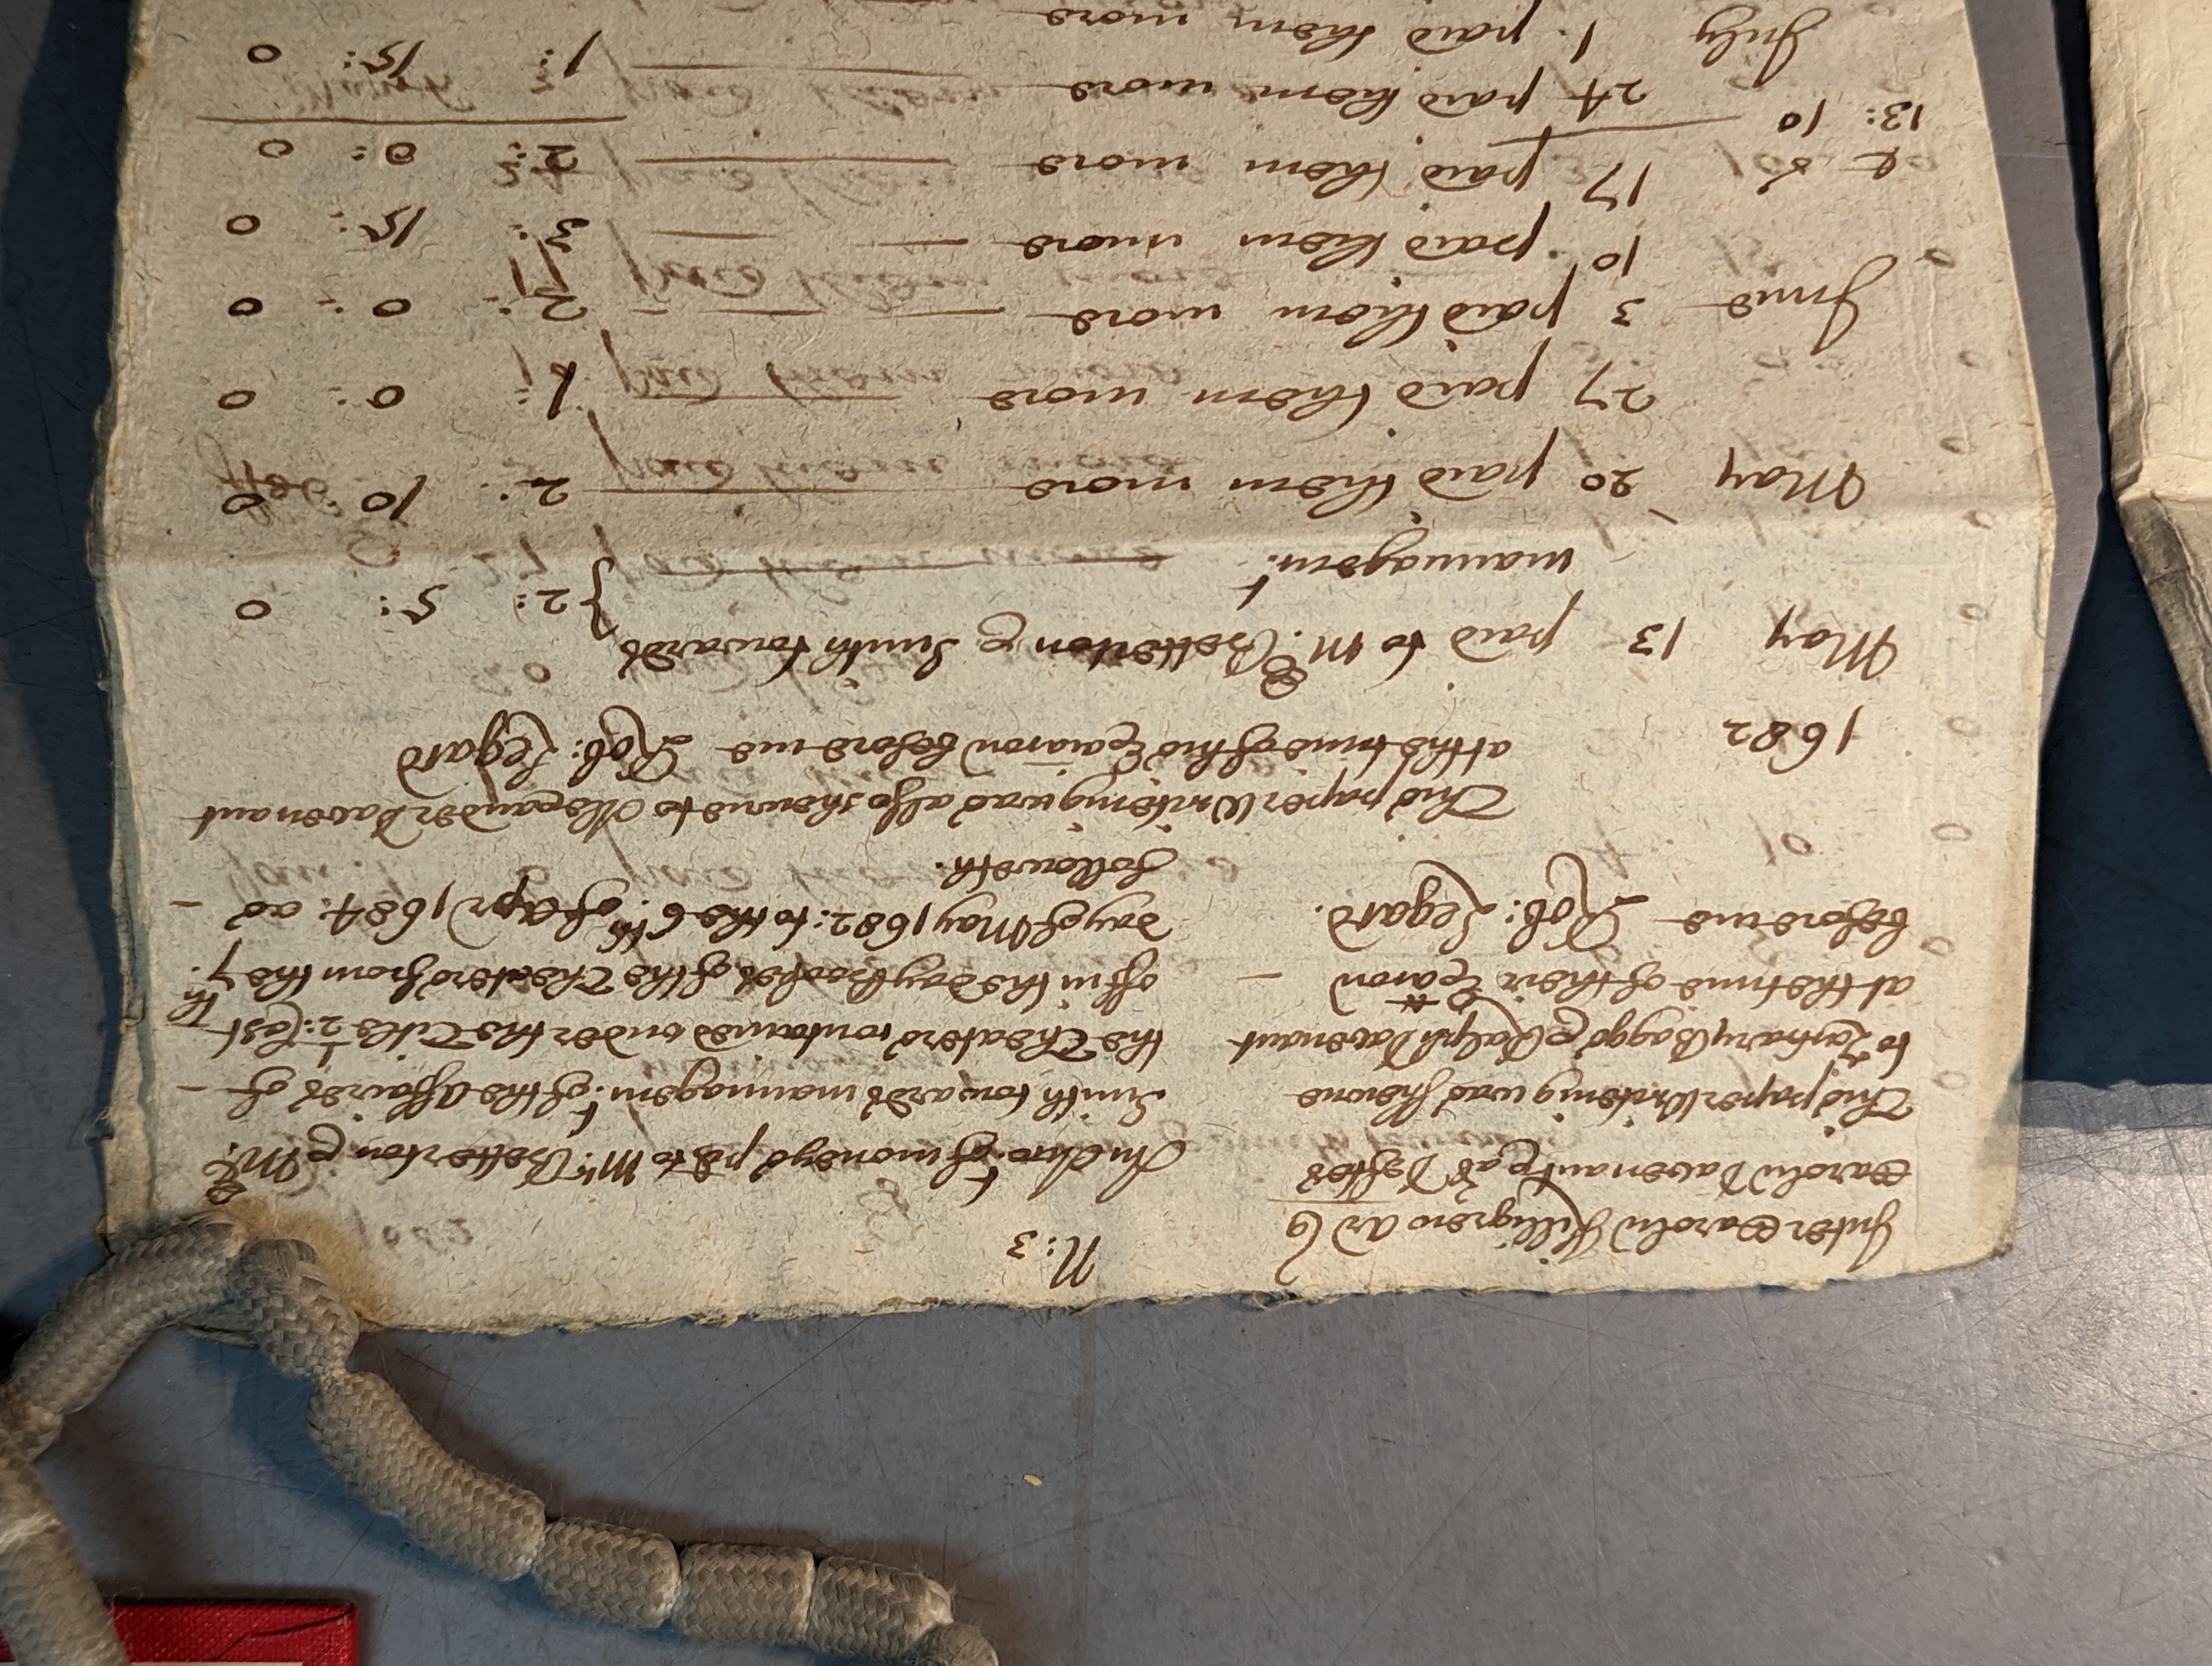 N: 3
Inter Carolu Killigrew ar Q
Carolu Davenant & ał Deftes
This paper Writeing was shewne
to Zachary Baggs & Ralph Davenant
at the time of their Exaicon
before me Rob: Legard.
An Acco.t of moneys pd to Mr. Betterton & Mr.
Smith towards mannagem.t of the Affaires of
the Theatere contained under the Title
of in the day bookes of the Theatere from the 7.th
day of May 1682: to the 6.th of Apr 1684: as
followeth.
This paper Writeing was also shewne to Allexander Davenant
at the time of his Exaicon before me Rob: Legard
1682
May 13 paid to Mr. Betterton & Smith towards } 2: 5: 0
mannagem.t
May 20 paid them more 2: 10: 0
27 paid them more 1: 0: 0
June 3 paid them more 2: 0: 0
10 paid them more 3: 15: 0
17 paid them more 2: 0: 0
13: 10
24 paid them more 1: 15: 0
July 1 paid them more